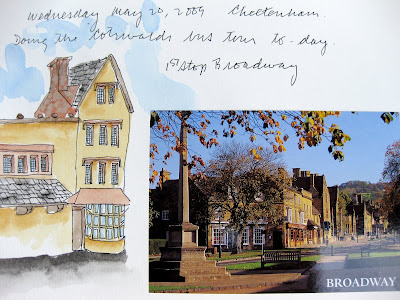 Wednesday May 20, 2009 Cheltenham.
Doing the Cotswolds bus tour to-day.
1st Stop Broadway
BROADWAY